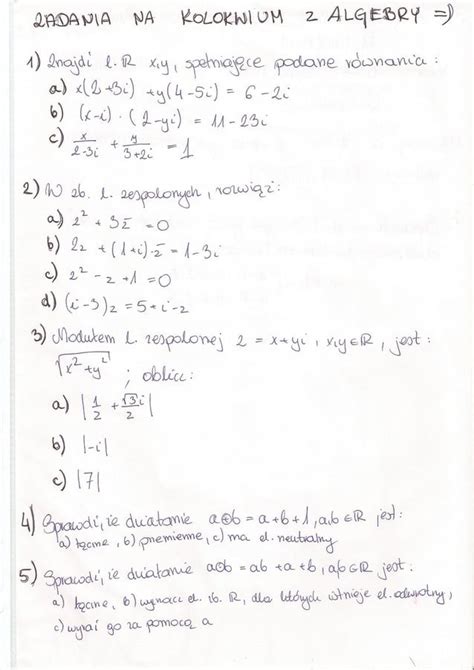 ZADANIA NA KOLOKWIUM Z ALGEBRY =)
1) Znajdź l. R x,y, spełniające podane równania:
a) x(2+3i) + y(4-5i) = 6-2i
b) (x-i) · (2-yi) = 11-23i
c) x/(2-3i) + y/(3+2i) = 1
2) W zb. l. zespolonych, rozwiąż:
a) z² + 3z̄ = 0
b) 2z + (1+i)·z̄ = 1-3i
c) z² - z + 1 = 0
d) (i-3)z = 5+i-z
3) Modułem l. zespolonej z = x+yi, x,y∈R, jest:
√(x²+y²) ; oblicz:
a) |1/2 + √3/2 i|
b) |-i|
c) |7|
4) Sprawdź, że działanie a⊕b = a+b+1, a,b∈R jest:
a) łączne, b) przemienne, c) ma el. neutralny
5) Sprawdź, że działanie a⊕b = ab+a+b, a,b∈R jest:
a) łączne, b) wyznacz el. zb. R, dla których istnieje el. odwrotny,
c) wyraź go za pomocą a